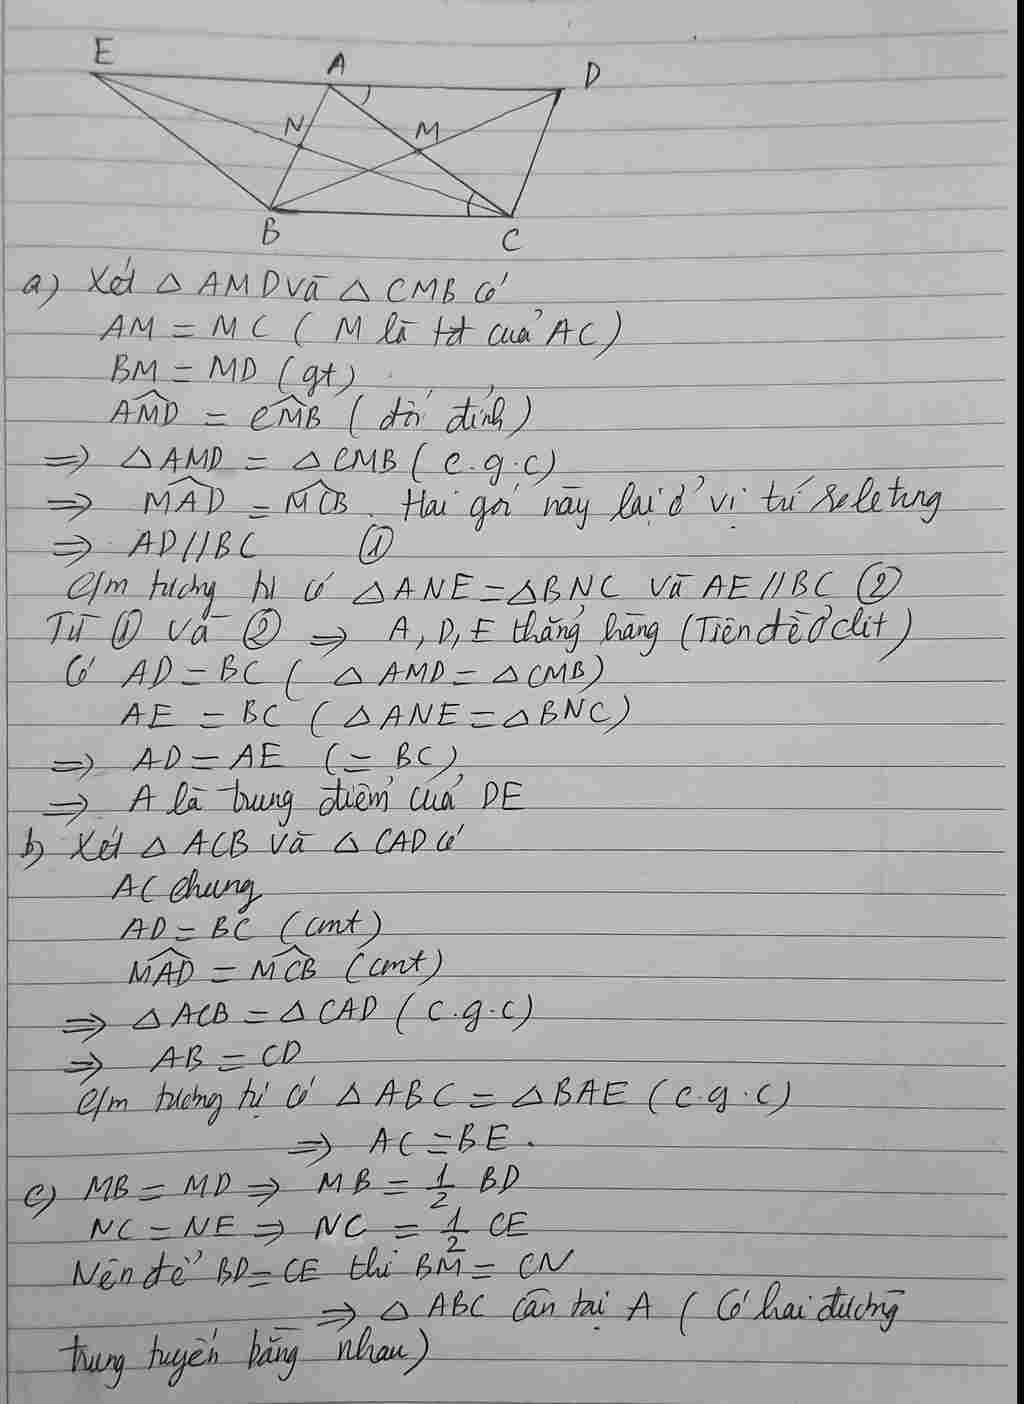 E
A
D
N
M
B
C
a) Xét △ AMD và △ CMB có
AM = MC ( M là tđ của AC )
BM = MD (gt)
AMD = CMB ( đối đỉnh )
=> △ AMD = △ CMB ( c.g.c )
=> MAD = MCB. Hai góc này lại ở vị trí so le trong
=> AD // BC ①
C/m tương tự có △ ANE = △ BNC và AE // BC ②
Từ ① và ② => A, D, E thẳng hàng (Tiên đề Ơclit)
Có AD = BC ( △ AMD = △ CMB)
AE = BC ( △ ANE = △ BNC)
=> AD = AE (= BC)
=> A là trung điểm của DE
b) Xét △ ACB và △ CAD có
AC chung
AD = BC (cmt)
MAD = MCB (cmt)
=> △ ACB = △ CAD ( c.g.c)
=> AB = CD
C/m tương tự có △ ABC = △ BAE ( c.g.c)
=> AC = BE.
c) MB = MD => MB = 1/2 BD
NC = NE => NC = 1/2 CE
Nên để BD = CE thì BM = CN
=> △ ABC cân tại A ( Có hai đường
trung tuyến bằng nhau)